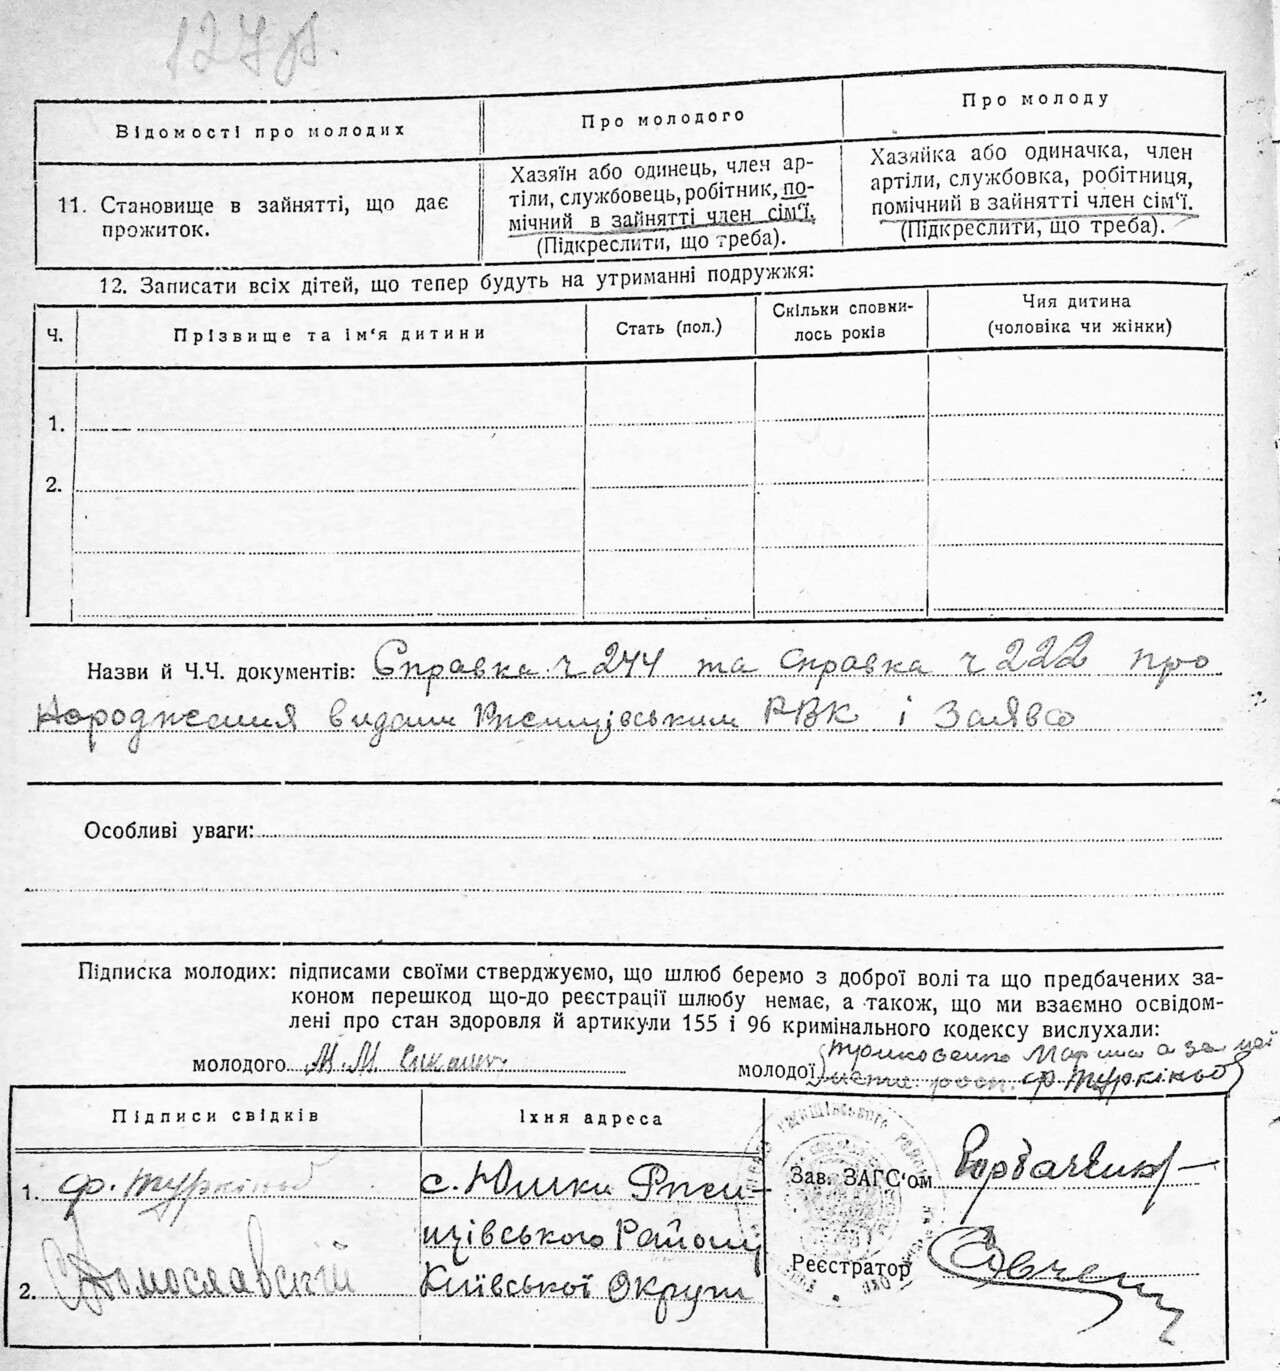 127
Відомості про молодих
Про молодого
Про молоду
11. Становище в зайнятті, що дає
прожиток.
Хазяїн або одинець, член ар-
тіли, службовець, робітник, по-
мічний в зайнятті член сім'ї.
(Підкреслити, що треба).
Хазяйка або одиначка, член
артіли, службовка, робітниця,
помічний в зайнятті член сім'ї.
(Підкреслити, що треба).
12. Записати всіх дітей, що тепер будуть на утриманні подружжя:
Ч.
Прізвище та ім'я дитини
Стать (пол.)
Скільки сповни-
лось років
Чия дитина
(чоловіка чи жінки)
1.
2.
Назви й Ч.Ч. документів: Справка ч 244 та справка ч 222 про
народження видани Ржищівським РВК і Заява
Особливі уваги:
Підписка молодих: підписами своїми стверджуємо, що шлюб беремо з доброї волі та що предбачених за-
коном перешкод що-до реєстрації шлюбу немає, а також, що ми взаємно освідом-
лені про стан здоровля й артикули 155 і 96 кримінального кодексу вислухали:
молодого М. М.
молодої Марина а за неї
росп. Ф Туркіньо
Підписи свідків
Їхня адреса
1. Ф. Туркіньо
2. Домославський
с. Юшки Ржи-
щівського Району
Київської Округи
Зав. ЗАГС'ом Горбаченко
Реєстратор